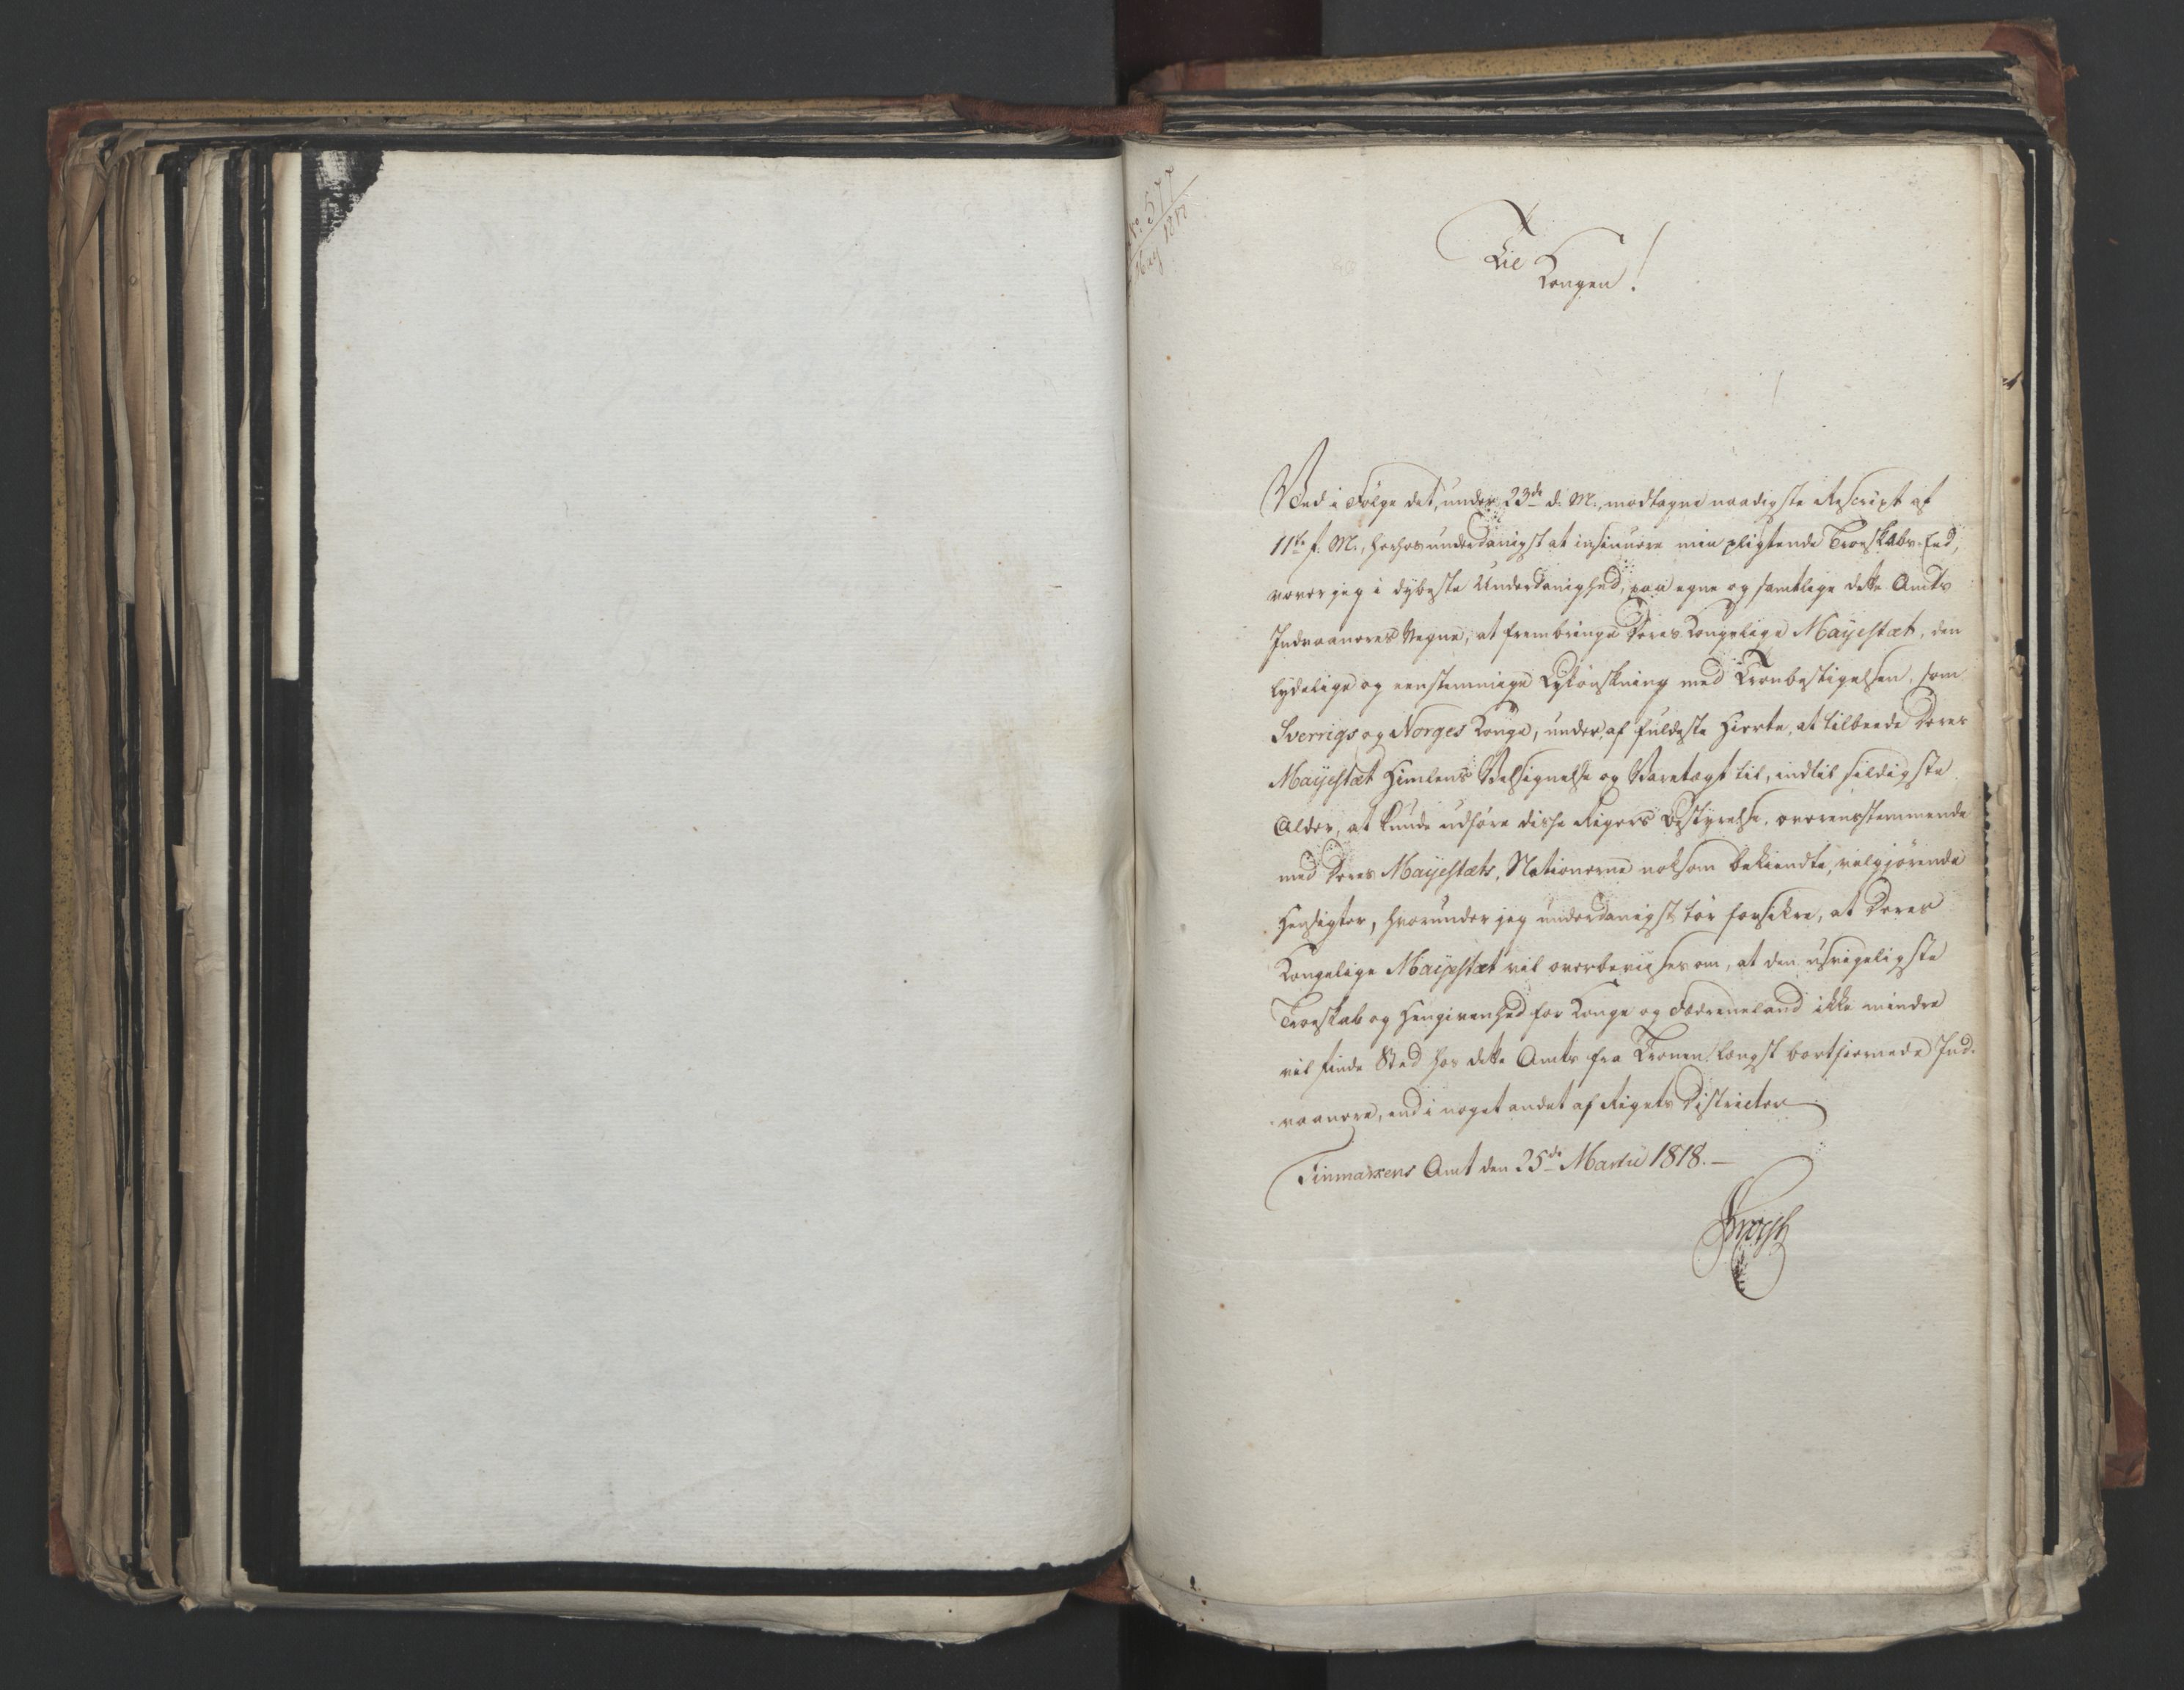 No 577
May 1818
Til
Kongen!
Ved i Følge det, under 23de d. M., modtagne naadigste Rescript af
11te f. M., herhos underdanigst at insinuere min pligtende Troeskabs-Eed,
vover jeg i dybeste Underdanighed, paa egne og samtlige dette Amts
Indvaaneres Vegne, at frembringe Deres Kongelige Mayestæt, den
lydelige og eenstemmige Lykønskning med Tronbestigelsen, som
Sverrigs og Norges Konge, under, af fuldeste Hierte, at tilbeede Deres
Mayestæt Himlens Velsignelse og Varetægt til, indtil sildigste
Alder, at kunde udføre disse Rigers Bestyrelse, overensstemmende
med Deres Mayestæts, Nationerne noksom bekiendte, velgjørende
Hensigter, hvorunder jeg underdanigst tør forsikre, at Deres
Kongelige Mayestæt vil overbevises om, at den usvigeligste
Troeskab og Hengivenhed for Konge og Fædreneland ikke mindre
vil finde Sted hos dette Amts fra Tronen længst bortfiernede Ind-
vaanere, end i noget andet af Rigets Districter
Finmarkens Amt den 25de Martii 1818.—
Krogh